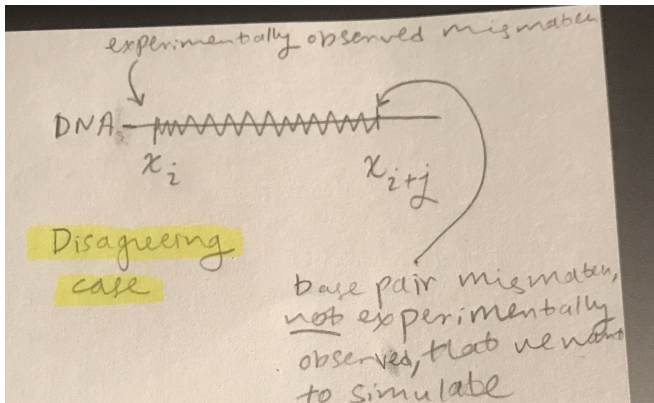 experimentally observed mismatch
DNA
x_i
x_{i+j}
Disagreeing
case
base pair mismatch,
not experimentally
observed, that we want
to simulate